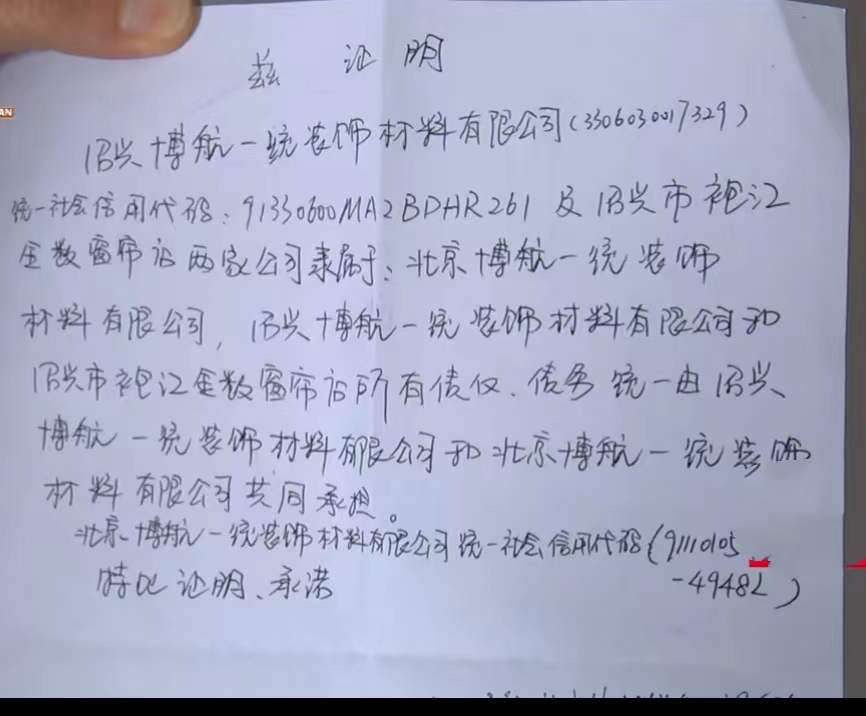 兹 证明
绍兴博航一统装饰材料有限公司(3306030017329)
统一社会信用代码:91330600MA2BDHR261及绍兴市袍江
金数窗帘店两家公司隶属于:北京博航一统装饰
材料有限公司,绍兴博航一统装饰材料有限公司和
绍兴市袍江金数窗帘店所有债权、债务统一由绍兴
博航一统装饰材料有限公司和北京博航一统装饰
材料有限公司共同承担。
北京博航一统装饰材料有限公司统一社会信用代码(91110105
-49482)
特此证明、承诺
AN